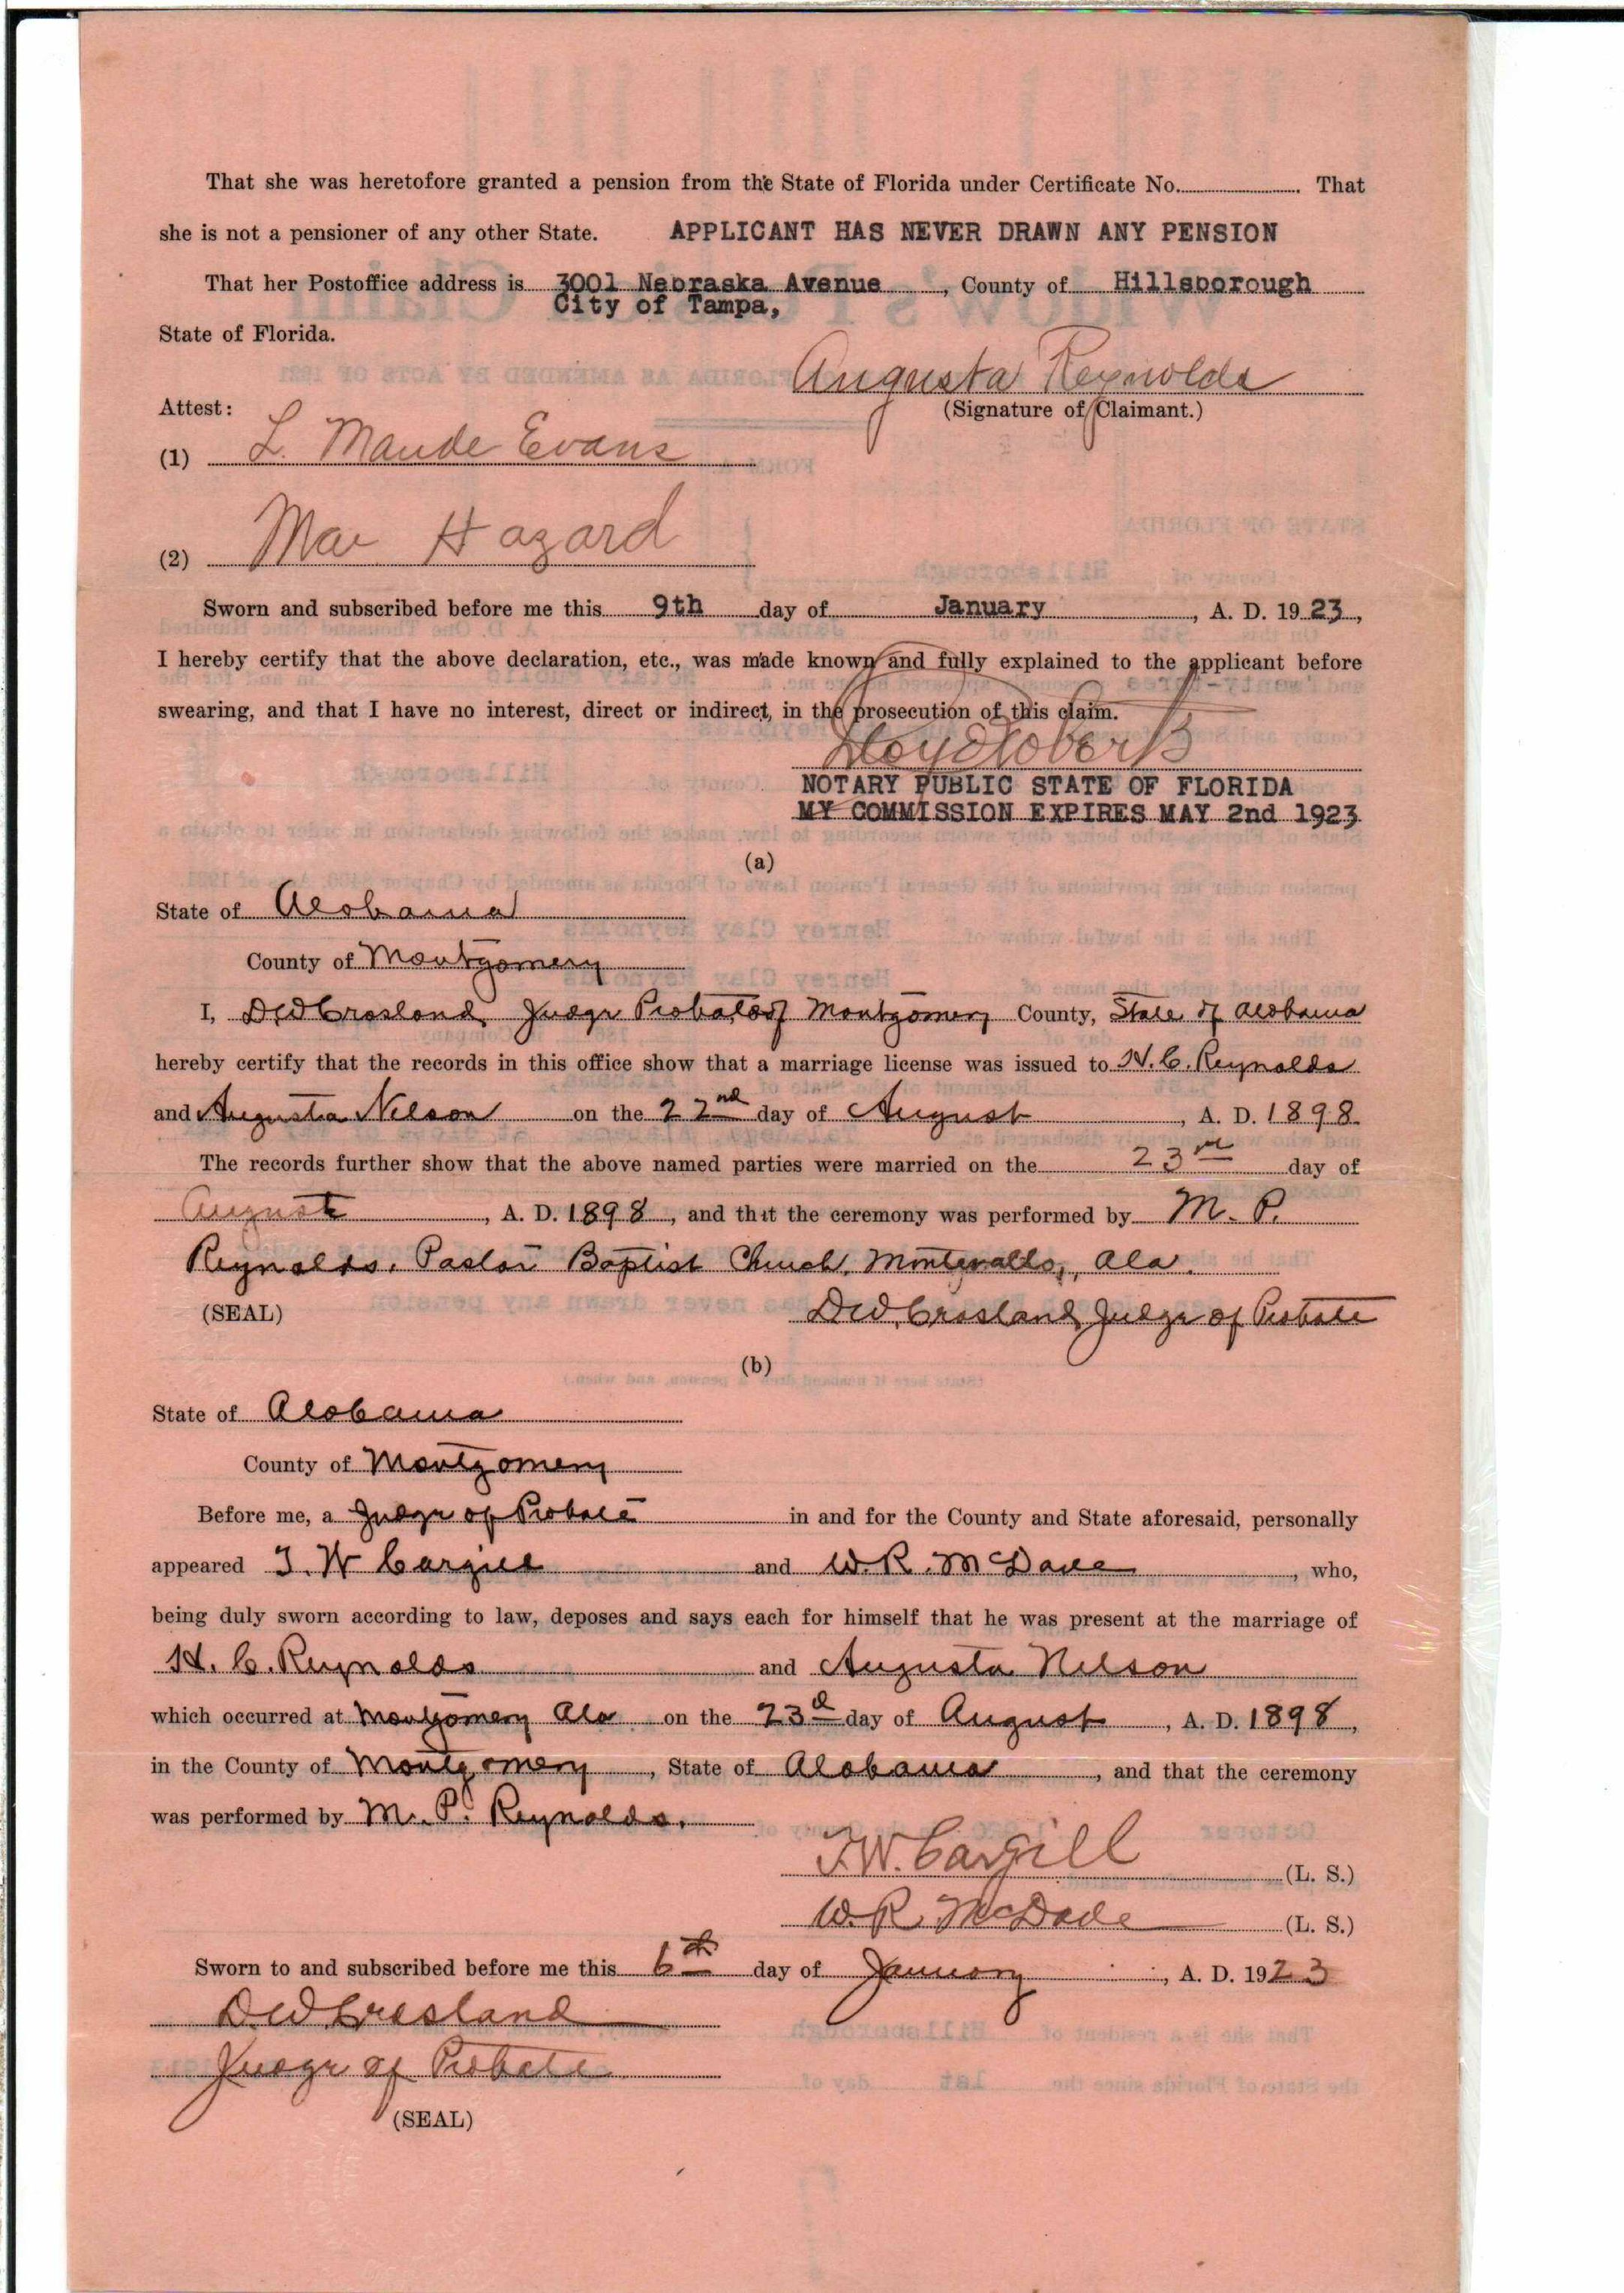 That she was heretofore granted a pension from the State of Florida under Certificate No. That
she is not a pensioner of any other State. APPLICANT HAS NEVER DRAWN ANY PENSION
That her Postoffice address is 3001 Nebraska Avenue, County of Hillsborough
City of Tampa,
State of Florida.
Augusta Reynolds
Attest: (Signature of Claimant.)
(1) L. Maude Evans
(2) Mae Hazard
Sworn and subscribed before me this 9th day of January, A. D. 1923,
I hereby certify that the above declaration, etc., was made known and fully explained to the applicant before
swearing, and that I have no interest, direct or indirect, in the prosecution of this claim.
NOTARY PUBLIC STATE OF FLORIDA
MY COMMISSION EXPIRES MAY 2nd 1923
(a)
State of Alabama
County of Montgomery
I, D W Crosland, Judge Probate of Montgomery County, State of Alabama
hereby certify that the records in this office show that a marriage license was issued to H. C. Reynolds
and Augusta Nelson on the 22nd day of August, A. D. 1898.
The records further show that the above named parties were married on the 23rd day of
August, A. D. 1898, and that the ceremony was performed by M. P.
Reynolds, Pastor Baptist Church, Montevallo, Ala.
(SEAL) D W. Crosland, Judge of Probate
(b)
State of Alabama
County of Montgomery
Before me, a Judge of Probate in and for the County and State aforesaid, personally
appeared T. W Cargill and W. R. McDade, who,
being duly sworn according to law, deposes and says each for himself that he was present at the marriage of
H. C. Reynolds and Augusta Nelson
which occurred at Montgomery Ala on the 23d day of August, A. D. 1898,
in the County of Montgomery, State of Alabama, and that the ceremony
was performed by M. P. Reynolds.
T. W. Cargill (L. S.)
W. R. McDade (L. S.)
Sworn to and subscribed before me this 6th day of January, A. D. 1923
D. W Crosland
Judge of Probate
(SEAL)